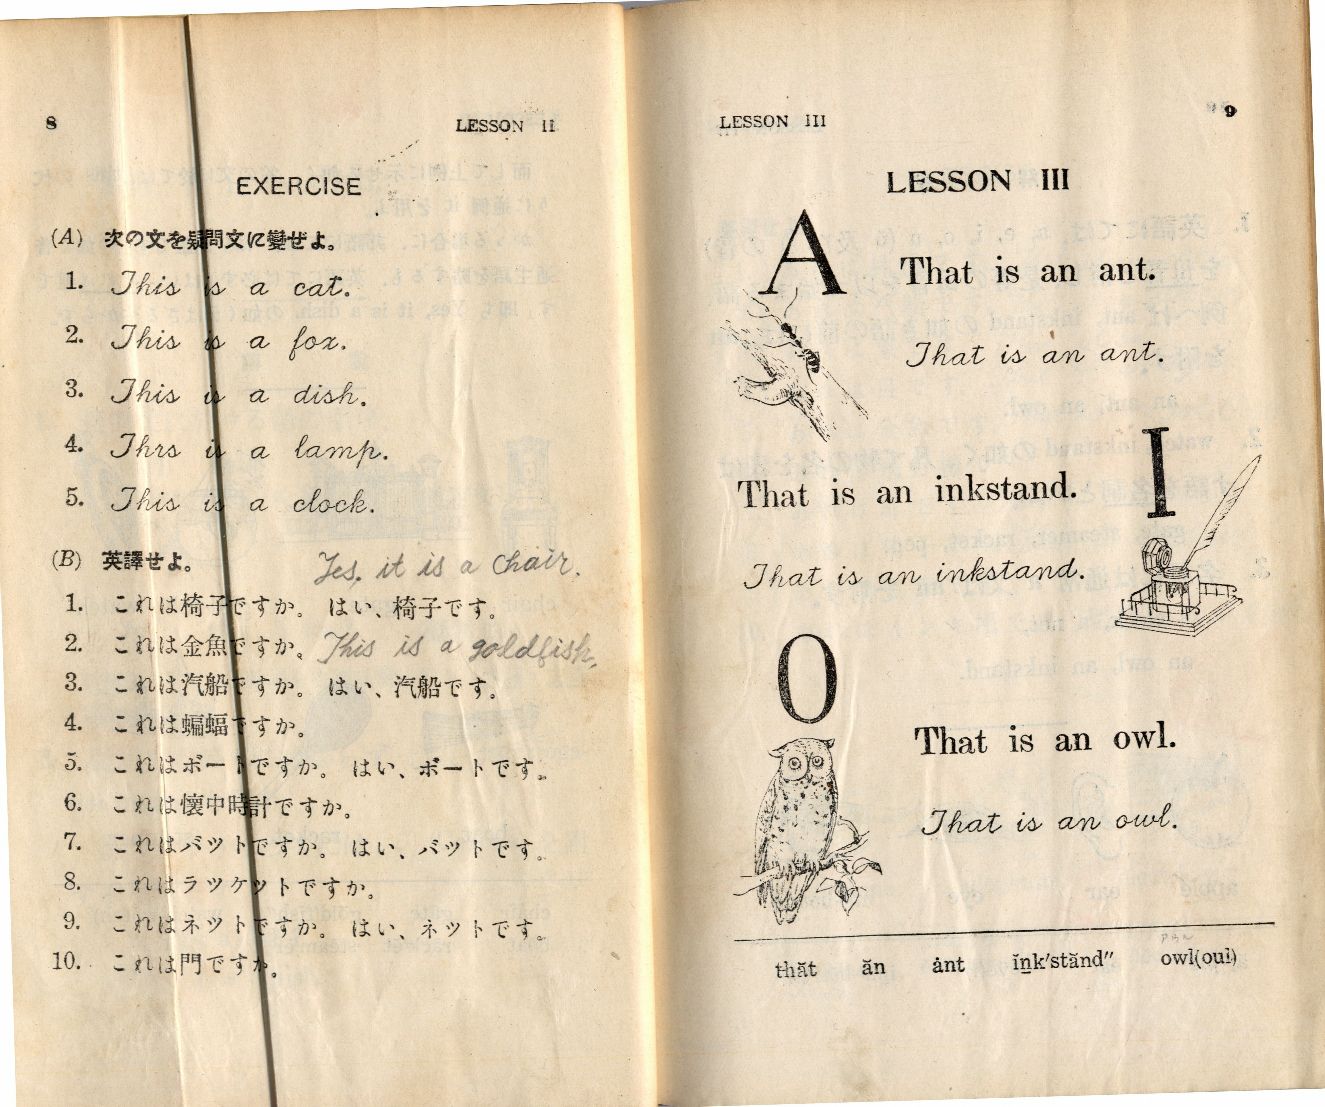 8 LESSON II
EXERCISE
(A) 次の文を疑問文に變ぜよ。
1. This is a cat.
2. This is a fox.
3. This is a dish.
4. This is a lamp.
5. This is a clock.
(B) 英譯せよ。 Yes, it is a chair.
1. これは椅子ですか。 はい、椅子です。
2. これは金魚ですか。 This is a goldfish.
3. これは汽船ですか。 はい、汽船です。
4. これは蝙蝠ですか。
5. これはボートですか。 はい、ボートです。
6. これは懷中時計ですか。
7. これはバットですか。 はい、バットです。
8. これはラツケツトですか。
9. これはネツトですか。 はい、ネツトです。
10. これは門ですか。
LESSON III 9
LESSON III
A
That is an ant.
That is an ant.
I
That is an inkstand.
That is an inkstand.
O
That is an owl.
That is an owl.
thăt ăn ȧnt ĭṉk′stănd″ owl(oul)